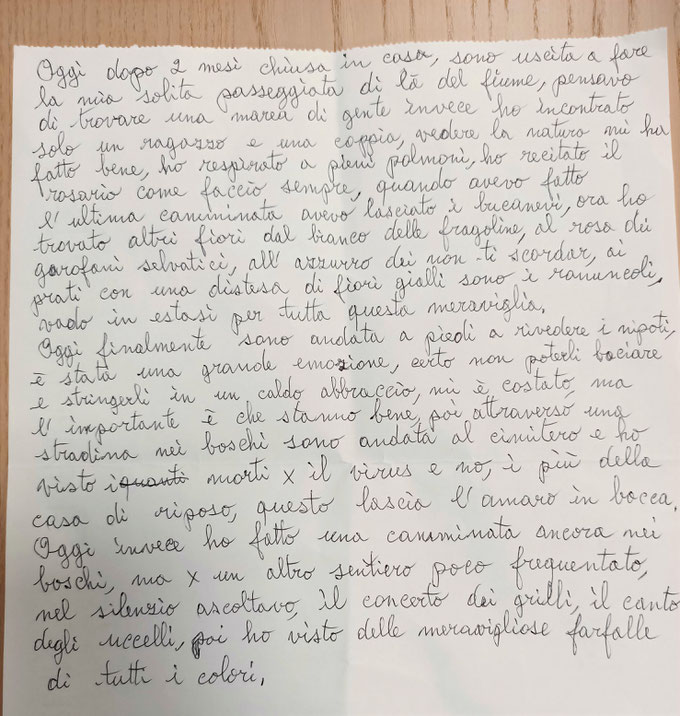 Oggi dopo 2 mesi chiusa in casa, sono uscita a fare
la mia solita passeggiata di là del fiume, pensavo
di trovare una marea di gente invece ho incontrato
solo un ragazzo e una coppia, vedere la natura mi ha
fatto bene, ho respirato a pieni polmoni, ho recitato il
rosario come faccio sempre, quando avevo fatto
l'ultima camminata avevo lasciato i bucanevi, ora ho
trovato altri fiori dal bianco delle fragoline, al rosa dei
garofani selvatici, all'azzurro dei non-ti scordar, ai
prati con una distesa di fiori gialli sono i ranuncoli,
vado in estasi per tutta questa meraviglia.
Oggi finalmente sono andata a piedi a rivedere i nipoti,
è stata una grande emozione, certo non poterli baciare
e stringerli in un caldo abbraccio, mi è costato, ma
l'importante è che stanno bene, poi attraverso una
stradina nei boschi sono andata al cimitero e ho
visto i quanti morti x il virus e no, i più della
casa di riposo, questo lascia l'amaro in bocca.
Oggi invece ho fatto una camminata ancora nei
boschi, ma x un altro sentiero poco frequentato,
nel silenzio ascoltavo, il concerto dei grilli, il canto
degli uccelli, poi ho visto delle meravigliose farfalle
di tutti i colori.